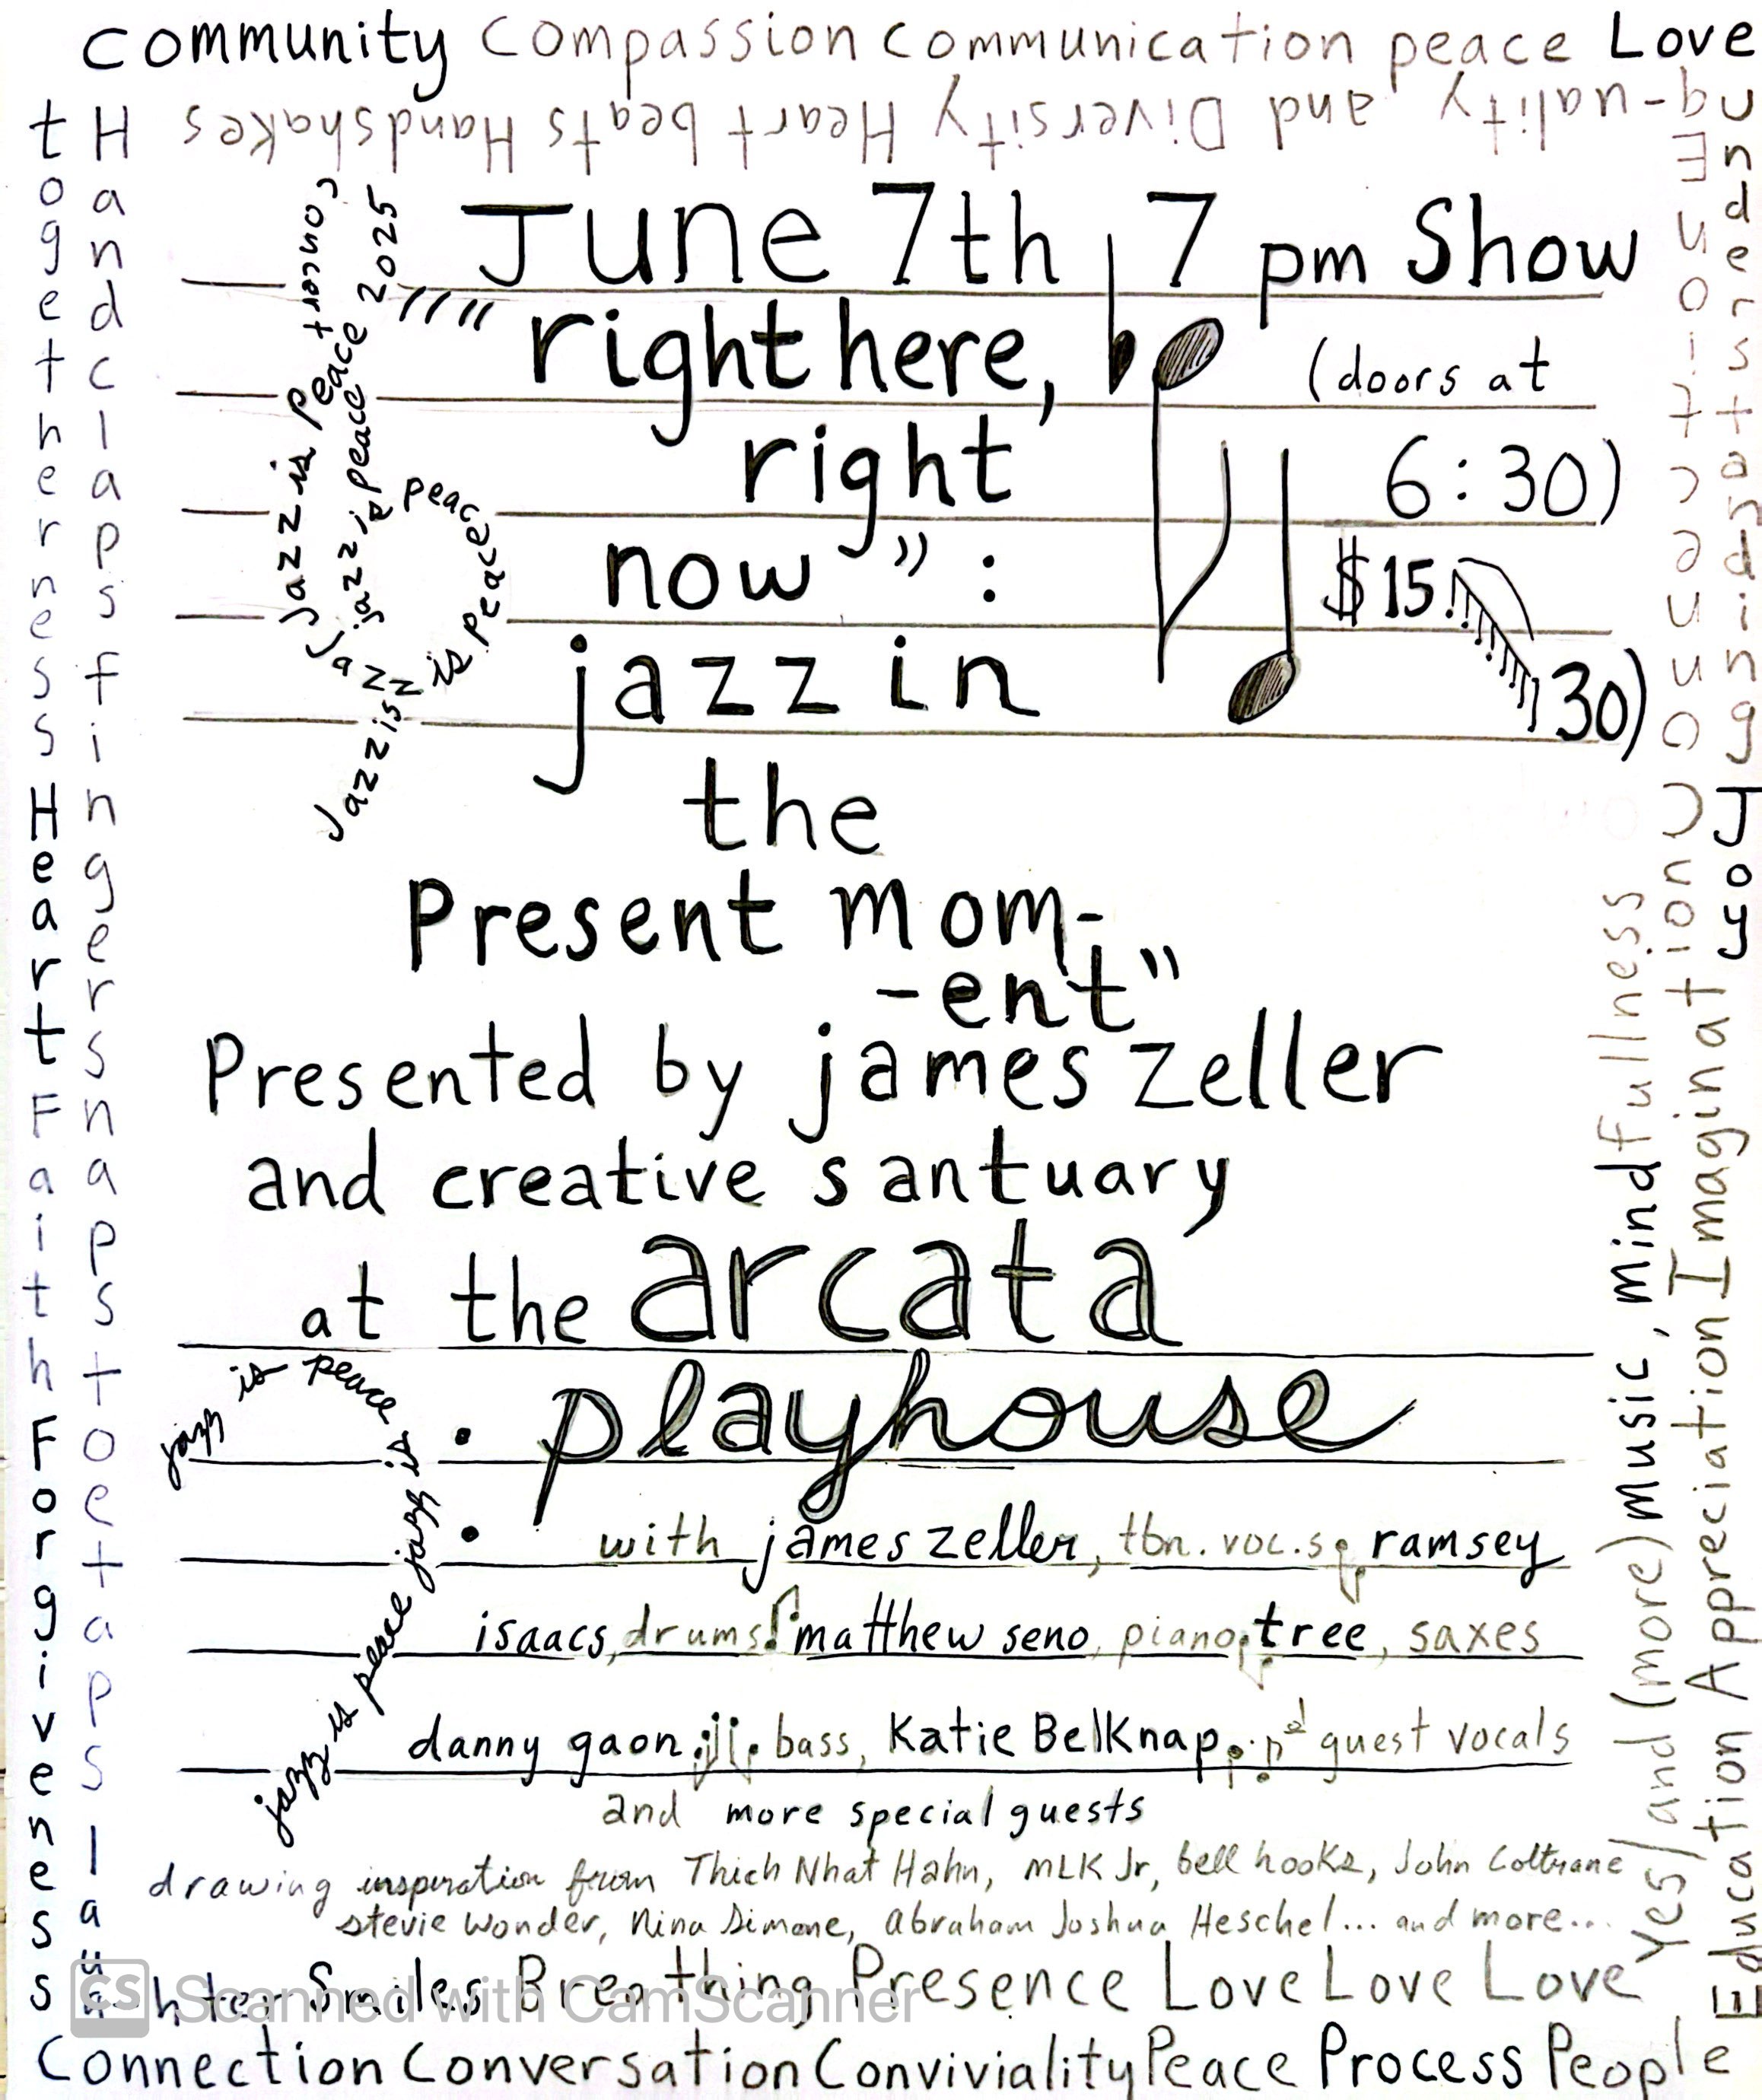 Community Compassion Communication peace Love
Understanding Joy
Eq-uality and Diversity Heart beats Handshakes
Handclaps fingersnaps toetaps laugh-hter Smiles Breathing Presence Love Love Love
togetherness Heart Faith Forgiveness
Connection Conversation Conviviality Peace Process People
Education Appreciation Imagination
Yes/and (more) music, mindfullness
June 7th 7 pm Show
"right here,
(doors at
right
6:30)
now" :
$15
30)
jazz in
the
Present Mom-
-ent"
Concert
Jazz is Peace
jazz is peace 2025
Jazz is peace
Jazz is Peace
Presented by james zeller
and creative santuary
at the arcata
playhouse
jazz is peace jazz is
jazz is peace
with james zeller, tbn. voc.s ramsey
isaacs, drums matthew seno, piano, tree, saxes
danny gaon bass, Katie Belknap guest vocals
and more special guests
drawing inspiration from Thich Nhat Hahn, MLK Jr, bell hooks, John Coltrane
stevie Wonder, Nina Simone, Abraham Joshua Heschel... and more...
CS Scanned with CamScanner